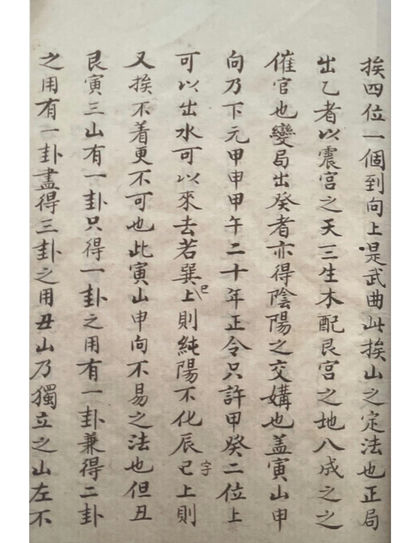 挨四位一個到向上是武曲此挨山之定法也正局
出乙者以震宮之天三生木配艮宮之地八成之之
催官也變局出癸者亦得陰陽之交媾也蓋寅山申
向乃下元甲申甲午二十年正令只許甲癸二位上
可以出水可以來去若巽巳上則純陽不化辰巳字上則
又挨不着更不可也此寅山申向不易之法也但丑
艮寅三山有一卦只得一卦之用有一卦兼得二卦
之用有一卦盡得三卦之用丑山乃獨立之山左不